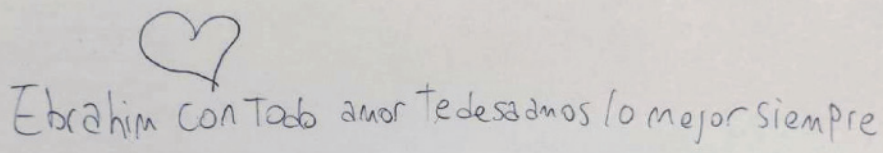 Ebrahim con Todo amor Te desaamos lo mejor siempre